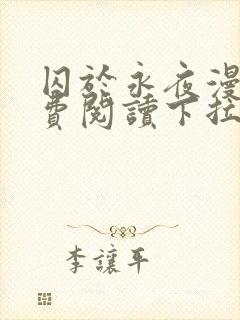 囚於永夜漫
費閱讀下拉
李讓平